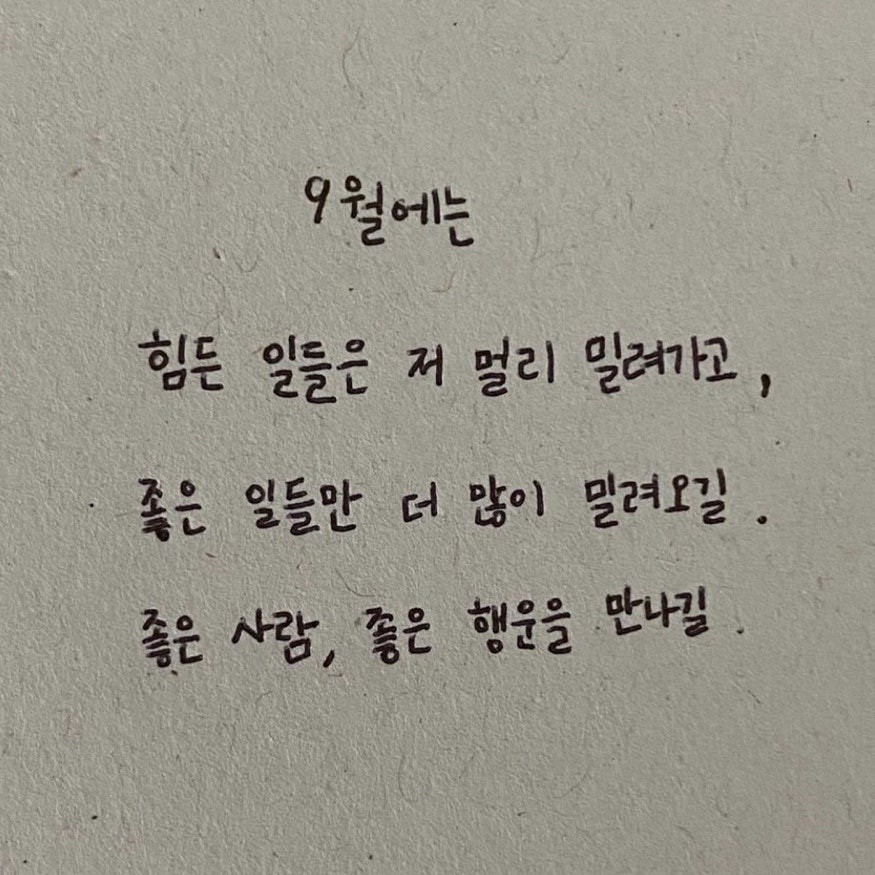 9월에는
힘든 일들은 저 멀리 밀려가고,
좋은 일들만 더 많이 밀려오길.
좋은 사람, 좋은 행운을 만나길.